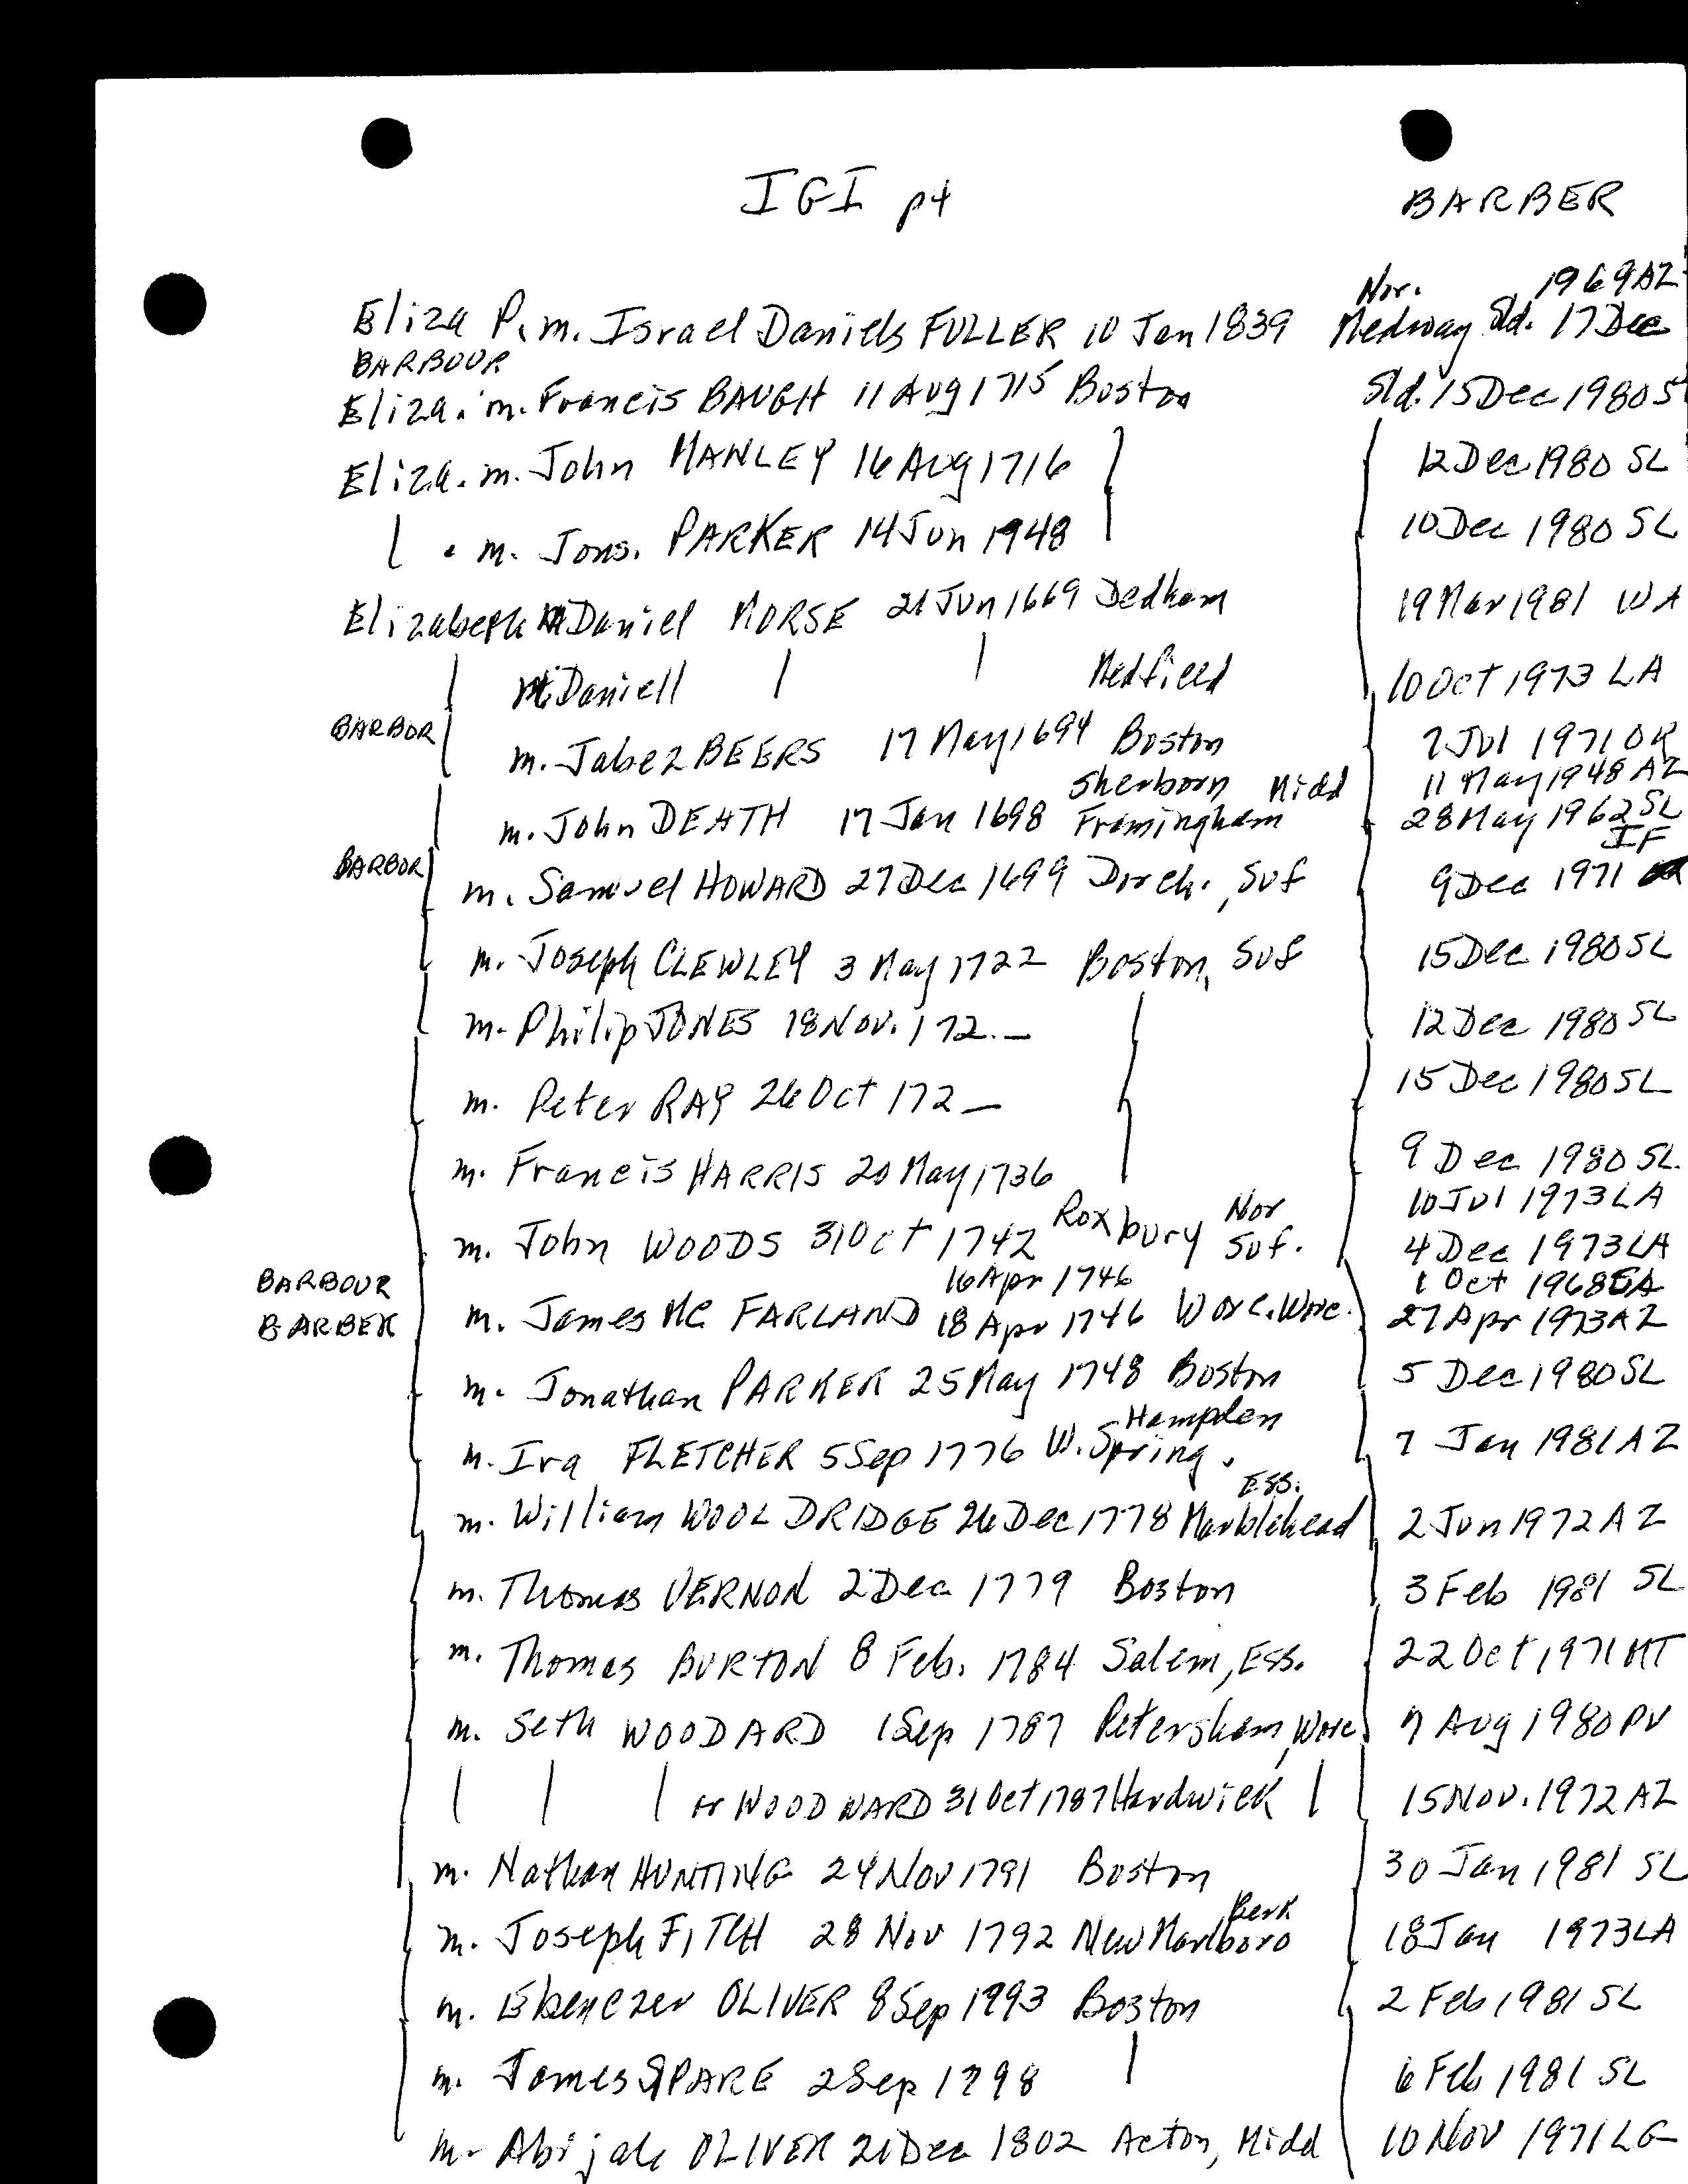 IGI p4 BARBER
Nor. 1969 AZ
Eliza P. m. Israel Daniels FULLER 10 Jan 1839 Medway Sld. 17 Dec
BARBOUR
Eliza. m. Francis BAUGH 11 Aug 1715 Boston Sld. 15 Dec 1980 S
Eliza. m. John MANLEY 16 Aug 1716 12 Dec 1980 SL
m. Jons. PARKER 14 Jun 1948 10 Dec 1980 SL
Elizabeth m Daniel MORSE 21 Jun 1669 Dedham 19 Mar 1981 WA
m. Daniell Medfield 10 Oct 1973 LA
BARBOR m. Jabez BEERS 17 May 1694 Boston 7 Jul 1971 OK
Sherborn Midd 11 May 1948 AZ
m. John DEATH 17 Jan 1698 Framingham 28 May 1962 SL
IF
BARBOR m. Samuel HOWARD 27 Dec 1699 Dorch., Suf 9 Dec 1971
m. Joseph CLEWLEY 3 May 1722 Boston, Suf 15 Dec 1980 SL
m. Philip JONES 18 Nov. 172._ 12 Dec 1980 SL
m. Peter RAY 26 Oct 172_ 15 Dec 1980 SL
m. Francis HARRIS 20 May 1736 9 Dec 1980 SL.
Nor 10 Jul 1973 LA
m. John WOODS 31 Oct 1742 Roxbury Suf. 4 Dec 1973 LA
BARBOUR 16 Apr 1746 1 Oct 1968
BARBER m. James Mc FARLAND 18 Apr 1746 Worc. Worc. 27 Apr 1973 AZ
m. Jonathan PARKER 25 May 1748 Boston 5 Dec 1980 SL
Hampden
m. Ira FLETCHER 5 Sep 1776 W. Spring. 7 Jan 1981 AZ
Ess.
m. William WOOLDRIDGE 26 Dec 1778 Marblehead 2 Jun 1972 AZ
m. Thomas VERNON 2 Dec 1779 Boston 3 Feb 1981 SL
m. Thomas BURTON 8 Feb. 1784 Salem, Ess. 22 Oct 1971 MT
m. Seth WOODARD 1 Sep 1787 Petersham, Worc 7 Aug 1980 PV
or WOODWARD 31 Oct 1787 Hardwick 15 Nov. 1972 AZ
m. Nathan HUNTING 24 Nov 1791 Boston 30 Jan 1981 SL
Berk
m. Joseph FITCH 28 Nov 1792 New Marlboro 18 Jan 1973 LA
m. Ebenezer OLIVER 8 Sep 1793 Boston 2 Feb 1981 SL
m. James SPARE 2 Sep 1798 6 Feb 1981 SL
m. Abijah OLIVER 21 Dec 1802 Acton, Midd 10 Nov 1971 LG